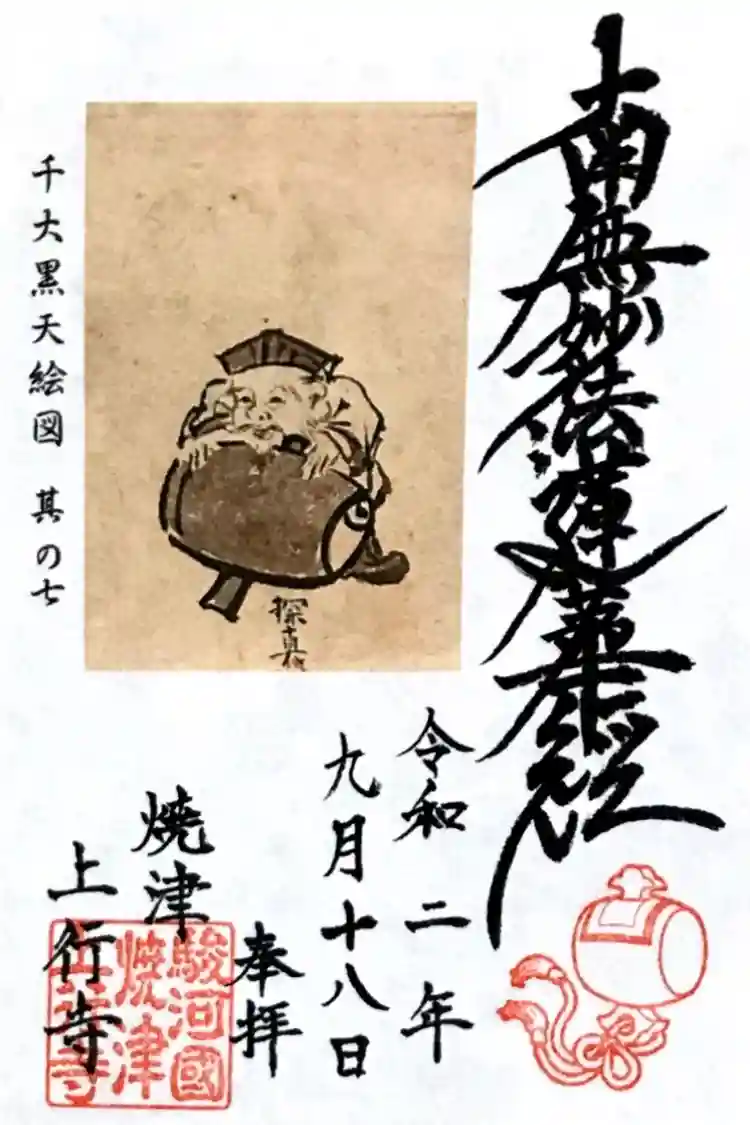 南無妙法蓮華経
令和二年
九月十八日
奉拝
焼津
上行寺
駿河國
焼津
上行寺
千大黒天絵図 其の七
探真